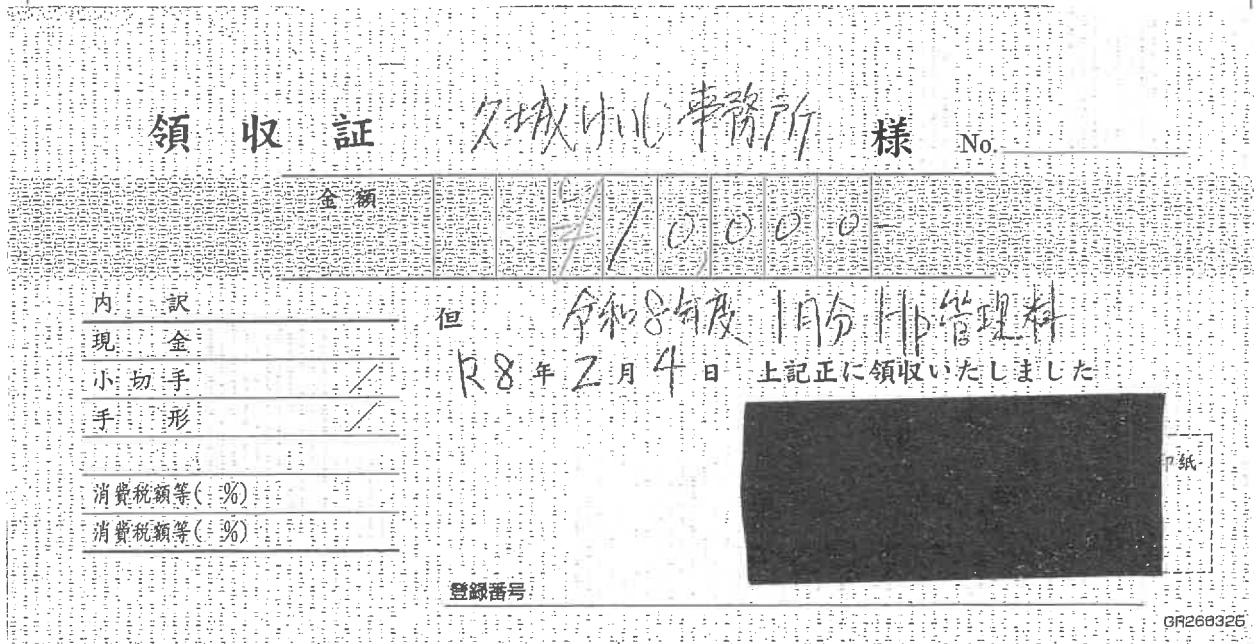 領収証 久城けいじ事務所 様 No.
金額 ¥10,000-
内訳
現金
小切手 /
手形 /
消費税額等( %)
消費税額等( %)
但 令和8年度 1月分 Hp管理料
R8年2月4日 上記正に領収いたしました
印紙
登録番号
GR260326